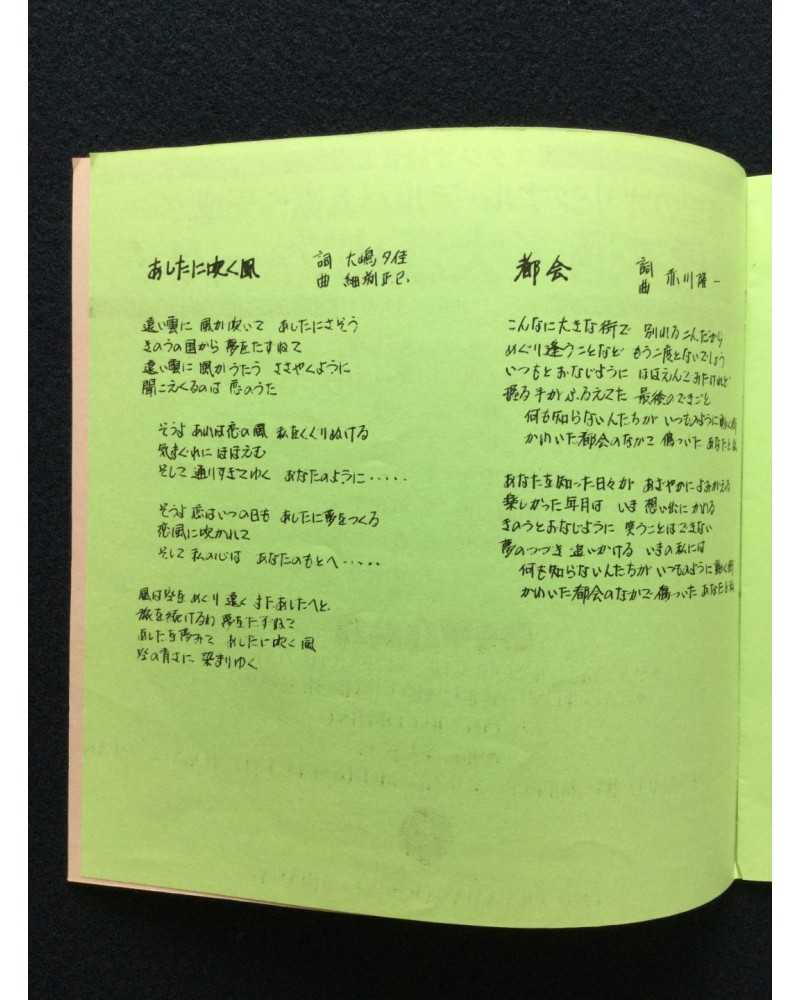 あしたに吹く風
詞 大嶋夕佳
曲 細渕正巳
遠い雲に 風が吹いて あしたにさそう
きのうの国から 夢をたずねて
遠い雲に 風がうたう ささやくように
聞こえくるのは 恋のうた
そうよ あれは恋の風 私をくぐりぬける
気まぐれに ほほえむ
そして 通りすぎてゆく あなたのように・・・・・
そうよ 恋はいつの日も あしたに夢をつくる
恋風に吹かれて
そして 私の心は あなたのもとへ・・・・・
風は空をめぐり 遠く またあしたへと
旅を続けるわ 夢をたずねて
あしたを夢みて あしたに吹く風
空の青さに 染まりゆく
都会
詞
曲 赤川隆一
こんなに大きな街で 別れるこんだから
めぐり逢うことなど もう二度とないでしょう
いつもとおなじように ほほえんでみたけれど
振る手がふるえてた 最後のできごと
何も知らない人たちが いつものように動く
かわいた都会のなかで 傷ついた あなたと
あなたを知った日々が あざやかによみがえる
楽しかった年月は いま 想い出にかわる
きのうとおなじように 笑うことはできない
夢のつづき 追いかける いまの私には
何も知らない人たちが いつものように動く
かわいた都会のなかで 傷ついた あなたと